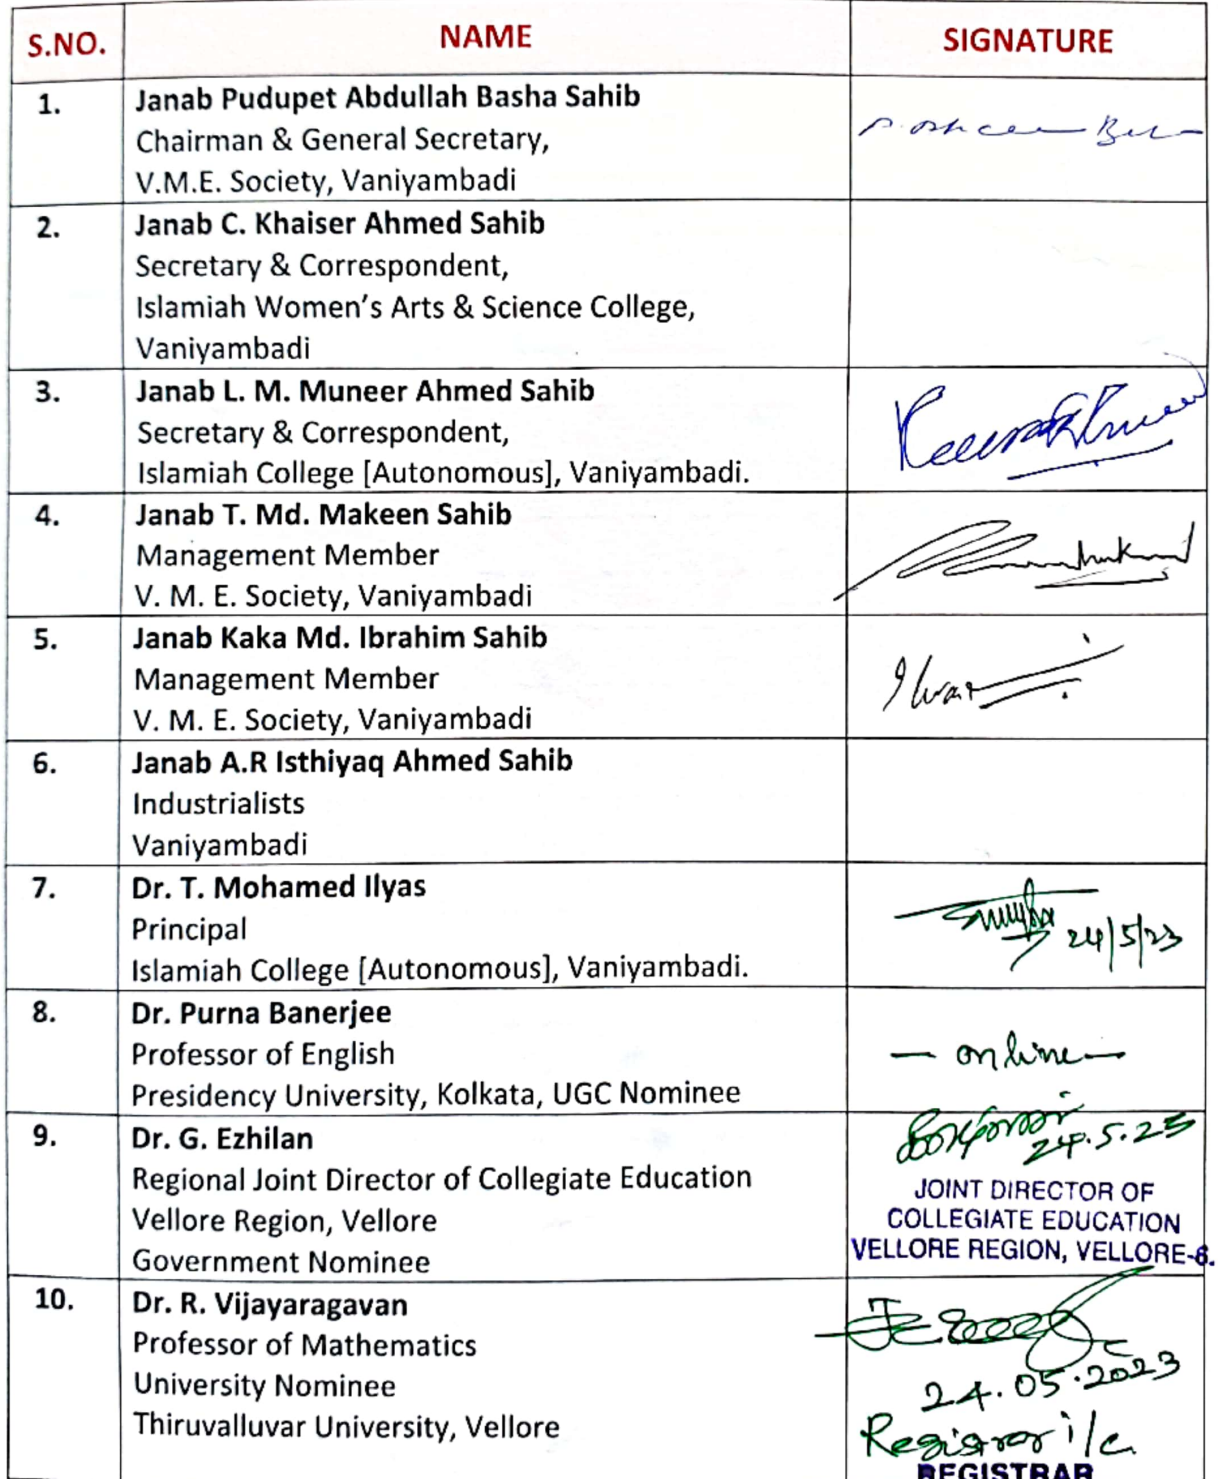 S.NO. NAME SIGNATURE
1. Janab Pudupet Abdullah Basha Sahib
Chairman & General Secretary,
V.M.E. Society, Vaniyambadi
2. Janab C. Khaiser Ahmed Sahib
Secretary & Correspondent,
Islamiah Women's Arts & Science College,
Vaniyambadi
3. Janab L. M. Muneer Ahmed Sahib
Secretary & Correspondent,
Islamiah College [Autonomous], Vaniyambadi.
4. Janab T. Md. Makeen Sahib
Management Member
V. M. E. Society, Vaniyambadi
5. Janab Kaka Md. Ibrahim Sahib
Management Member
V. M. E. Society, Vaniyambadi
6. Janab A.R Isthiyaq Ahmed Sahib
Industrialists
Vaniyambadi
7. Dr. T. Mohamed Ilyas
Principal
24/5/23
Islamiah College [Autonomous], Vaniyambadi.
8. Dr. Purna Banerjee
Professor of English
— online —
Presidency University, Kolkata, UGC Nominee
9. Dr. G. Ezhilan
24.5.23
Regional Joint Director of Collegiate Education
JOINT DIRECTOR OF
Vellore Region, Vellore
COLLEGIATE EDUCATION
Government Nominee
VELLORE REGION, VELLORE-6.
10. Dr. R. Vijayaragavan
Professor of Mathematics
University Nominee
24.05.2023
Thiruvalluvar University, Vellore
Registrar i/c
REGISTRAR